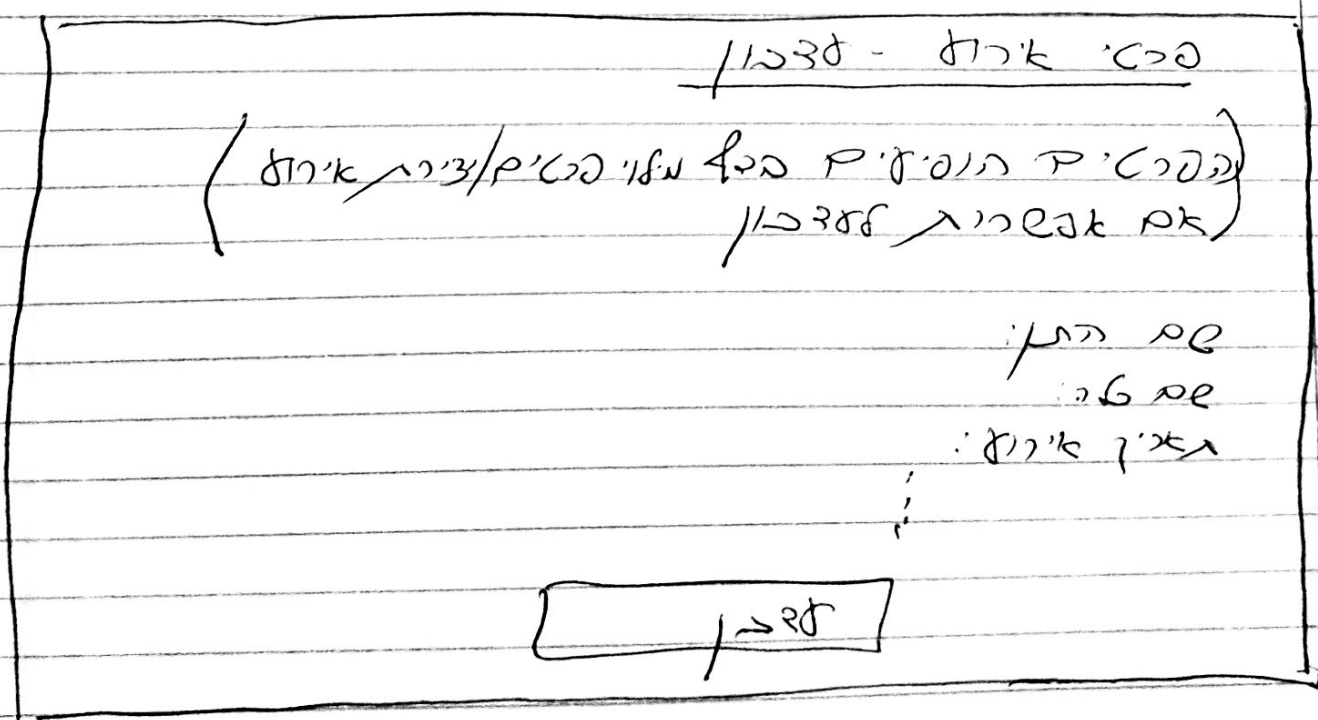 פרטי אירוע - עדכון
(הפרטים הנופיעים בדף מילוי פרטים/יצירת אירוע
אם אפשרות לעדכון)
שם החתן:
שם כלה:
תאריך אירוע:
עדכן